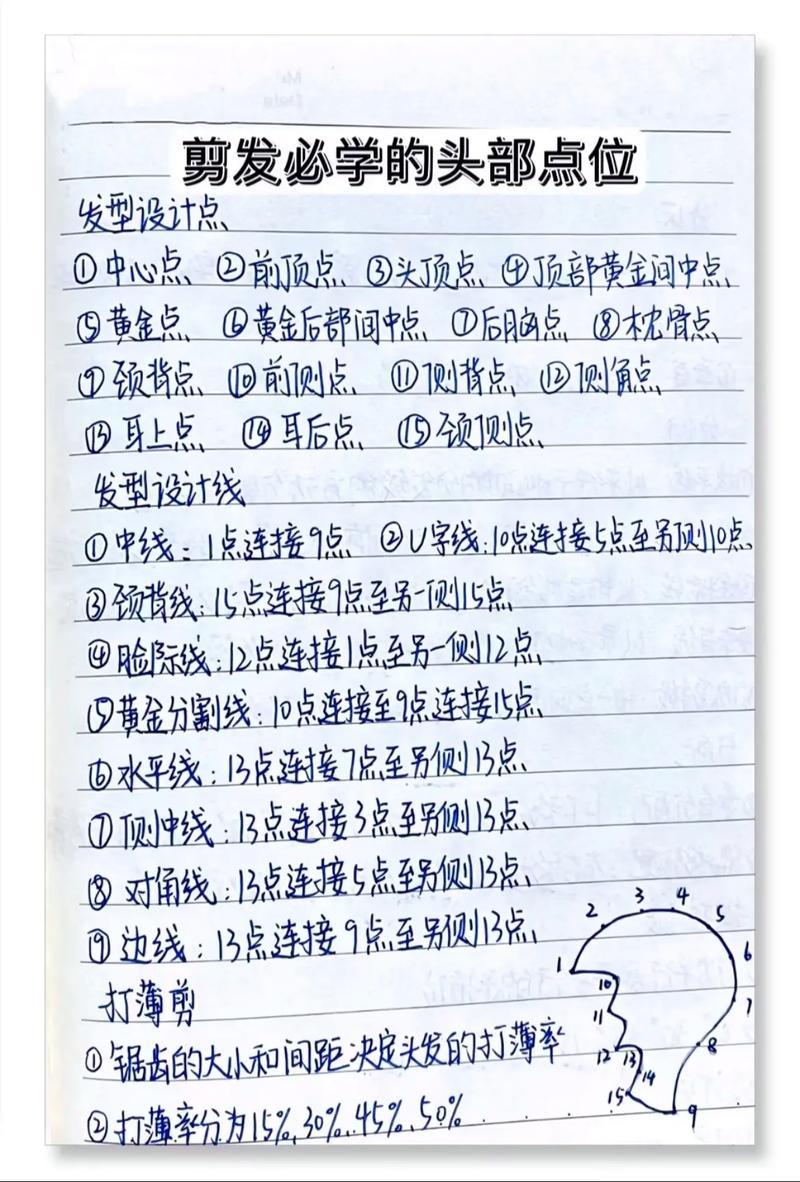 剪发必学的头部点位
发型设计点
①中心点 ②前顶点 ③头顶点 ④顶部黄金间中点
⑤黄金点 ⑥黄金后部间中点 ⑦后脑点 ⑧枕骨点
⑨颈背点 ⑩前侧点 ⑪侧背点 ⑫侧角点
⑬耳上点 ⑭耳后点 ⑮颈侧点
发型设计线
①中线:1点连接9点 ②U字线:10点连接5点至另侧10点
③颈背线:15点连接9点至另一侧15点
④脸际线:12点连接1点至另一侧12点
⑤黄金分割线:10点连接至9点连接15点
⑥水平线:13点连接7点至另侧13点
⑦顶侧中线:13点连接3点至另侧13点
⑧对角线:13点连接5点至另侧13点
⑨边线:13点连接9点至另侧13点
打薄剪
①锯齿的大小和间距决定头发的打薄率
②打薄率分为15%、30%、45%、50%
1
2
3
4
5
6
7
8
9
10
11
12
13
14
15